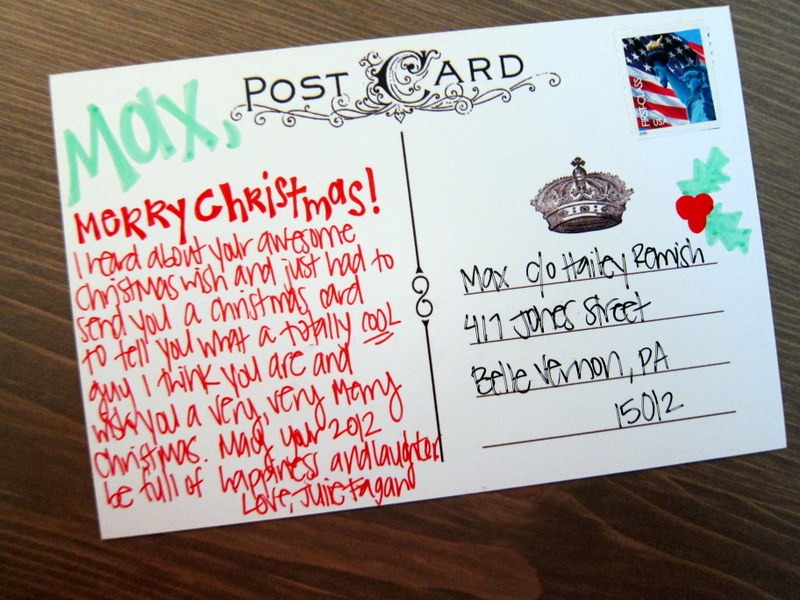 POST CARD
FIRST-CLASS
USA
Max,
MERRY Christmas!
I heard about your awesome
Christmas wish and just had to
send you a christmas card
to tell you what a totally COOL
guy I think you are and
wish you a very, very Merry
Christmas. May your 2012
be full of happiness and laughter
Love, Julie Fagan
Max c/o Hailey Remish
417 Jones Street
Belle Vernon, PA
15012